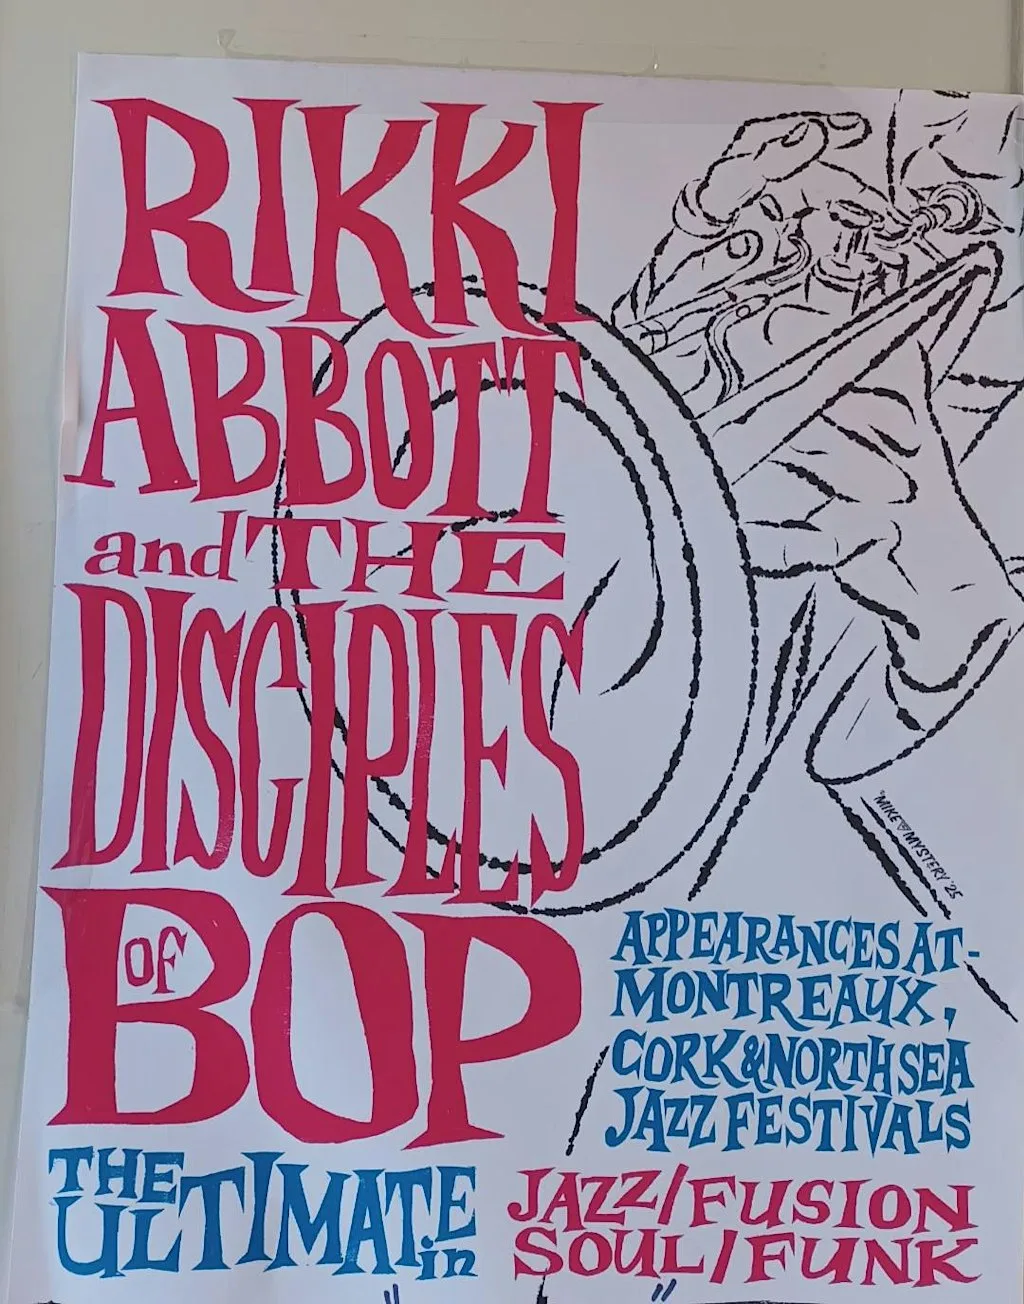 RIKKI
ABBOTT
and THE
DISCIPLES
OF BOP
"MIKE MYSTERY '25
APPEARANCES AT-
MONTREAUX,
CORK & NORTH SEA
JAZZ FESTIVALS
THE
ULTIMATE
in
JAZZ/FUSION
SOUL/FUNK